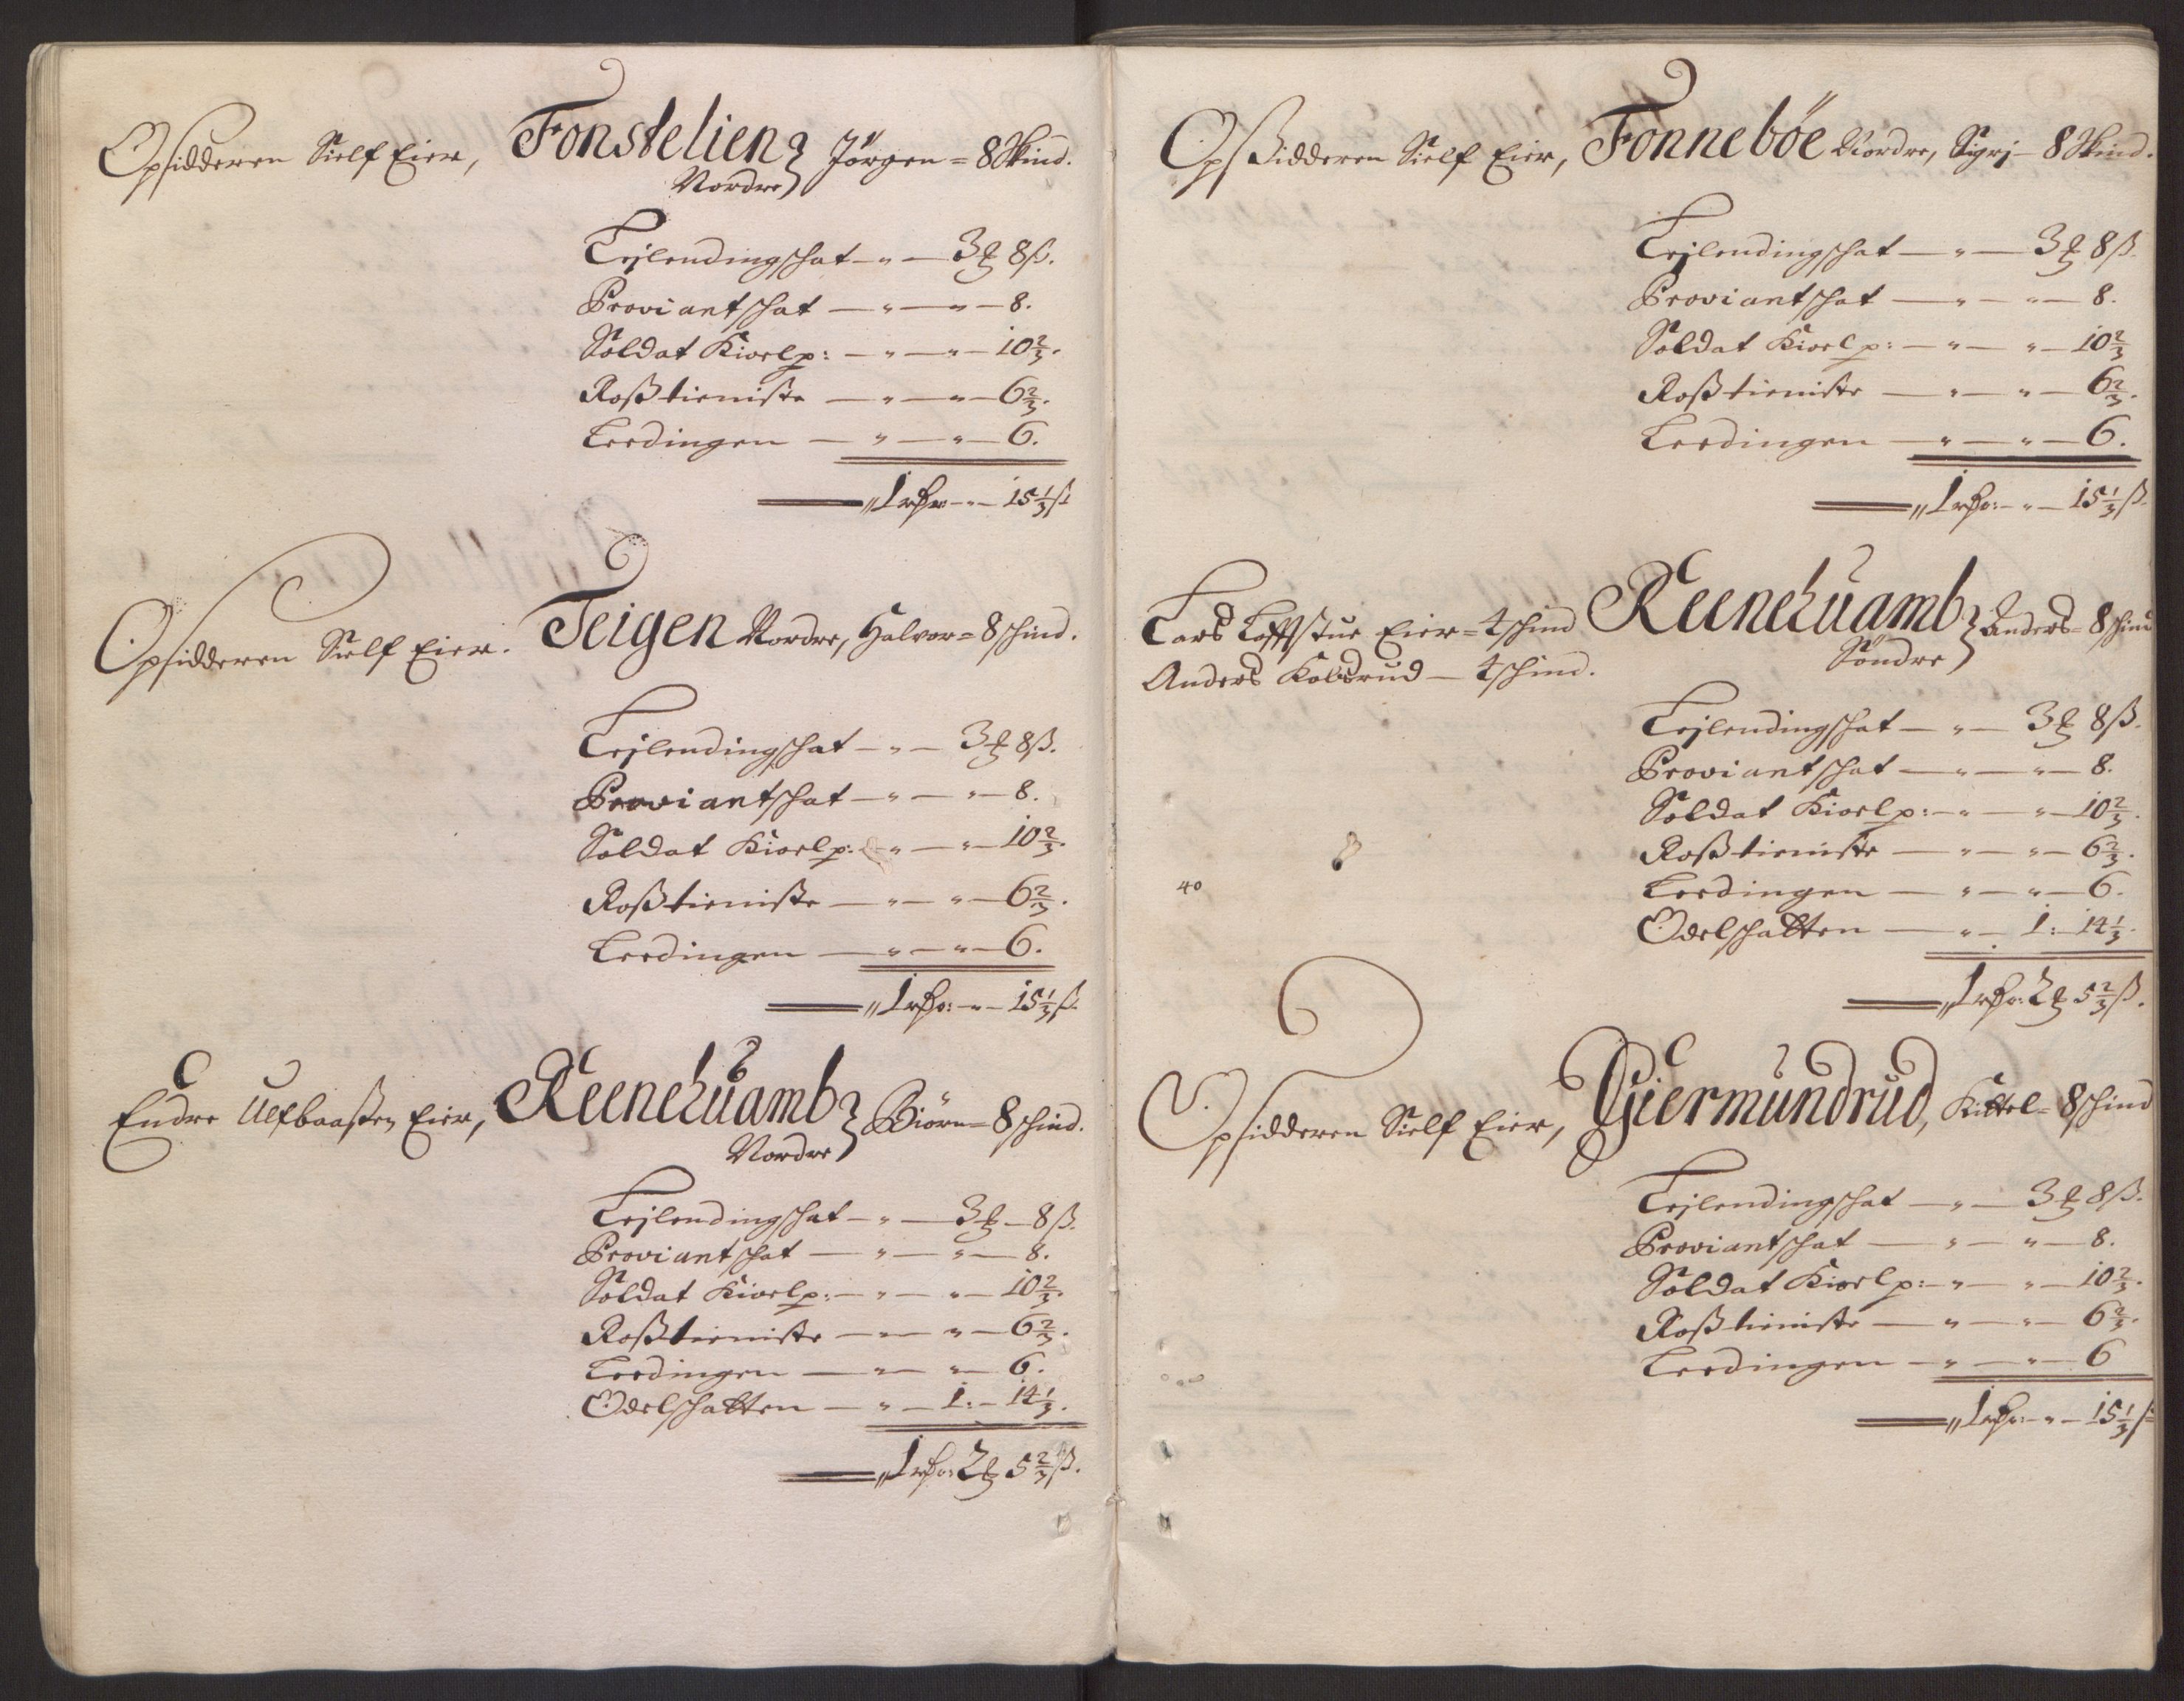 Opsidderen Sielf Eier, Fonstelien Nordre } Jörgen = 8 Skind.
Lejlendingschat — " — 3 ₰ 8 ß.
Proviantschat — " — " — 8.
Soldat Kioelp: — " — " — 10 2/3.
Roßtieniste — " — " — 6 2/3.
Leedingen — " — " — 6.
" 1 rdr — " — 15 1/3 ß
Opsidderen Sielf Eier. Teigen Nordre, Halvor = 8 schind.
Lejlendingschat — " — 3 ₰ 8 ß.
Proviantschat — " — " — 8.
Soldat Kioelp: — " — " — 10 2/3.
Roßtieniste — " — " — 6 2/3.
Leedingen — " — " — 6.
" 1 rdr: — " — 15 1/3 ß
Endre Ulfbaaßen Eier, Reenehuamb Nordre } Biörn = 8 schind.
Lejlendingschat — " — 3 ₰ — 8 ß.
Proviantschat — " — " — 8.
Soldat Kioelp: — " — " — 10 2/3.
Roßtieniste — " — " — 6 2/3.
Leedingen — " — " — 6.
Odelschatten — " — 1: — 14 1/3.
" 1 rdr: 2 ₰ 5 2/3 ß.
Opßidderen Sielf Eier, Fonneböe Nordre, Sigrj — 8 Skind.
Lejlendingschat — " — 3 ₰ 8 ß.
Proviantschat — " — " — 8.
Soldat Kioelp: — " — " — 10 2/3
Roßtieniste — " — " — 6 2/3.
Leedingen — " — " — 6.
" 1 rdr: — " — 15 1/3 ß.
Lars Lofftstue Eier = 4 schind Reenehuamb Söndre } Anders = 8 schind
Anders Kolsrud — 4 schind.
Lejlendingschat — " — 3 ₰ 8 ß.
Proviantschat — " — " — 8.
Soldat Kioelp: — " — " — 10 2/3.
Roßtieniste — " — " — 6 2/3.
40
Leedingen — " — " — 6.
Odelschatten — " — 1: 14 1/3.
" 1 rdr: 2 ₰ 5 2/3 ß.
Opsidderen Sielf Eier, Giermundrud, Kittel = 8 schind
Lejlendingschat — " — 3 ₰ 8 ß.
Proviantschat — " — " — 8.
Soldat Kioelp: — " — " — 10 2/3.
Roßtieniste — " — " — 6 2/3.
Leedingen — " — " — 6
" 1 rdr: — " — 15 1/3 ß